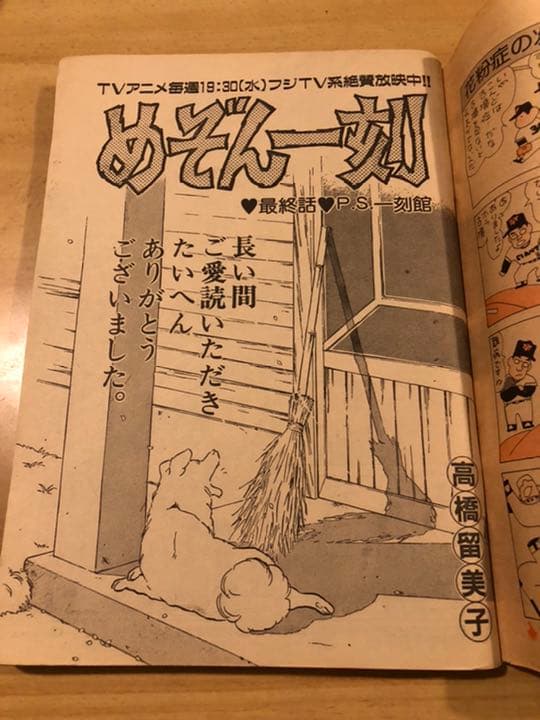 TVアニメ毎週19:30(水)フジTV系絶賛放映中!!
めぞん一刻
♥最終話♥P.S.一刻館
長い間
ご愛読いただき
たいへん
ありがとう
ございました。
高橋留美子
花粉症の